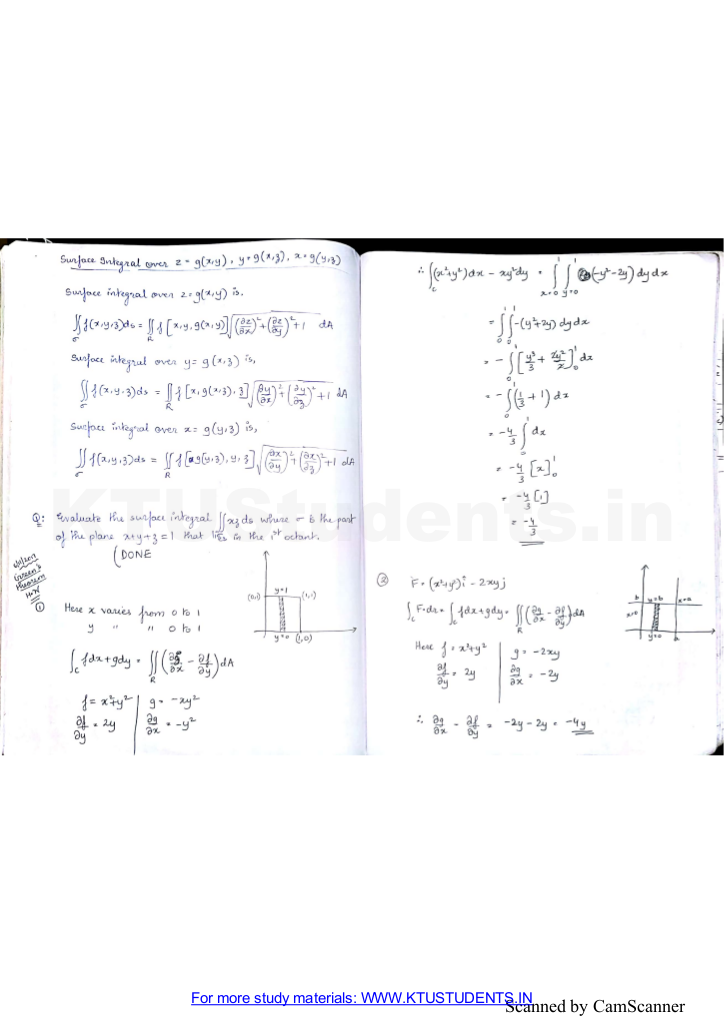 Surface Integral over z = g(x,y), y = g(x,z), x = g(y,z)
Surface integral over z = g(x,y) is.
∬_σ f(x,y,z)ds = ∬_R f[x,y,g(x,y)] √((∂z/∂x)² + (∂z/∂y)² + 1) dA
Surface integral over y = g(x,z) is,
∬_σ f(x,y,z)ds = ∬_R f[x,g(x,z),z] √((∂y/∂x)² + (∂y/∂z)² + 1) dA
Surface integral over x = g(y,z) is,
∬_σ f(x,y,z)ds = ∬_R f[g(y,z),y,z] √((∂x/∂y)² + (∂x/∂z)² + 1) dA
Q: Evaluate the surface integral ∬ xz ds where σ is the part
of the plane x+y+z=1 that lies in the 1st octant.
(DONE
Green's
Theorem
H.W
①
Here x varies from 0 to 1
y " " 0 to 1
y=1
(0,1) (1,1)
y=0 (1,0)
∫_C fdx+gdy = ∬_R (∂g/∂x - ∂f/∂y) dA
f = x²+y² | g = -xy²
∂f/∂y = 2y | ∂g/∂x = -y²
∴ ∫_C (x²+y²)dx - xy²dy = ∫_{x=0}^{1} ∫_{y=0}^{1} (-y²-2y) dy dx
= ∫_0^1 ∫_0^1 -(y²+2y) dy dx
= -∫_0^1 [y³/3 + 2y²/2]_0^1 dx
= -∫_0^1 (1/3 + 1) dx
= -4/3 ∫_0^1 dx
= -4/3 [x]_0^1
= -4/3 [1]
= -4/3
② F = (x²+y²)i - 2xyj
∫_C F·dr = ∫_C fdx+gdy = ∬_R (∂g/∂x - ∂f/∂y) dA
b y=b x=a
x=0
y=0 a
Here f = x²+y² | g = -2xy
∂f/∂y = 2y | ∂g/∂x = -2y
∴ ∂g/∂x - ∂f/∂y = -2y-2y = -4y
KTUStudents.in
For more study materials: WWW.KTUSTUDENTS.IN
Scanned by CamScanner